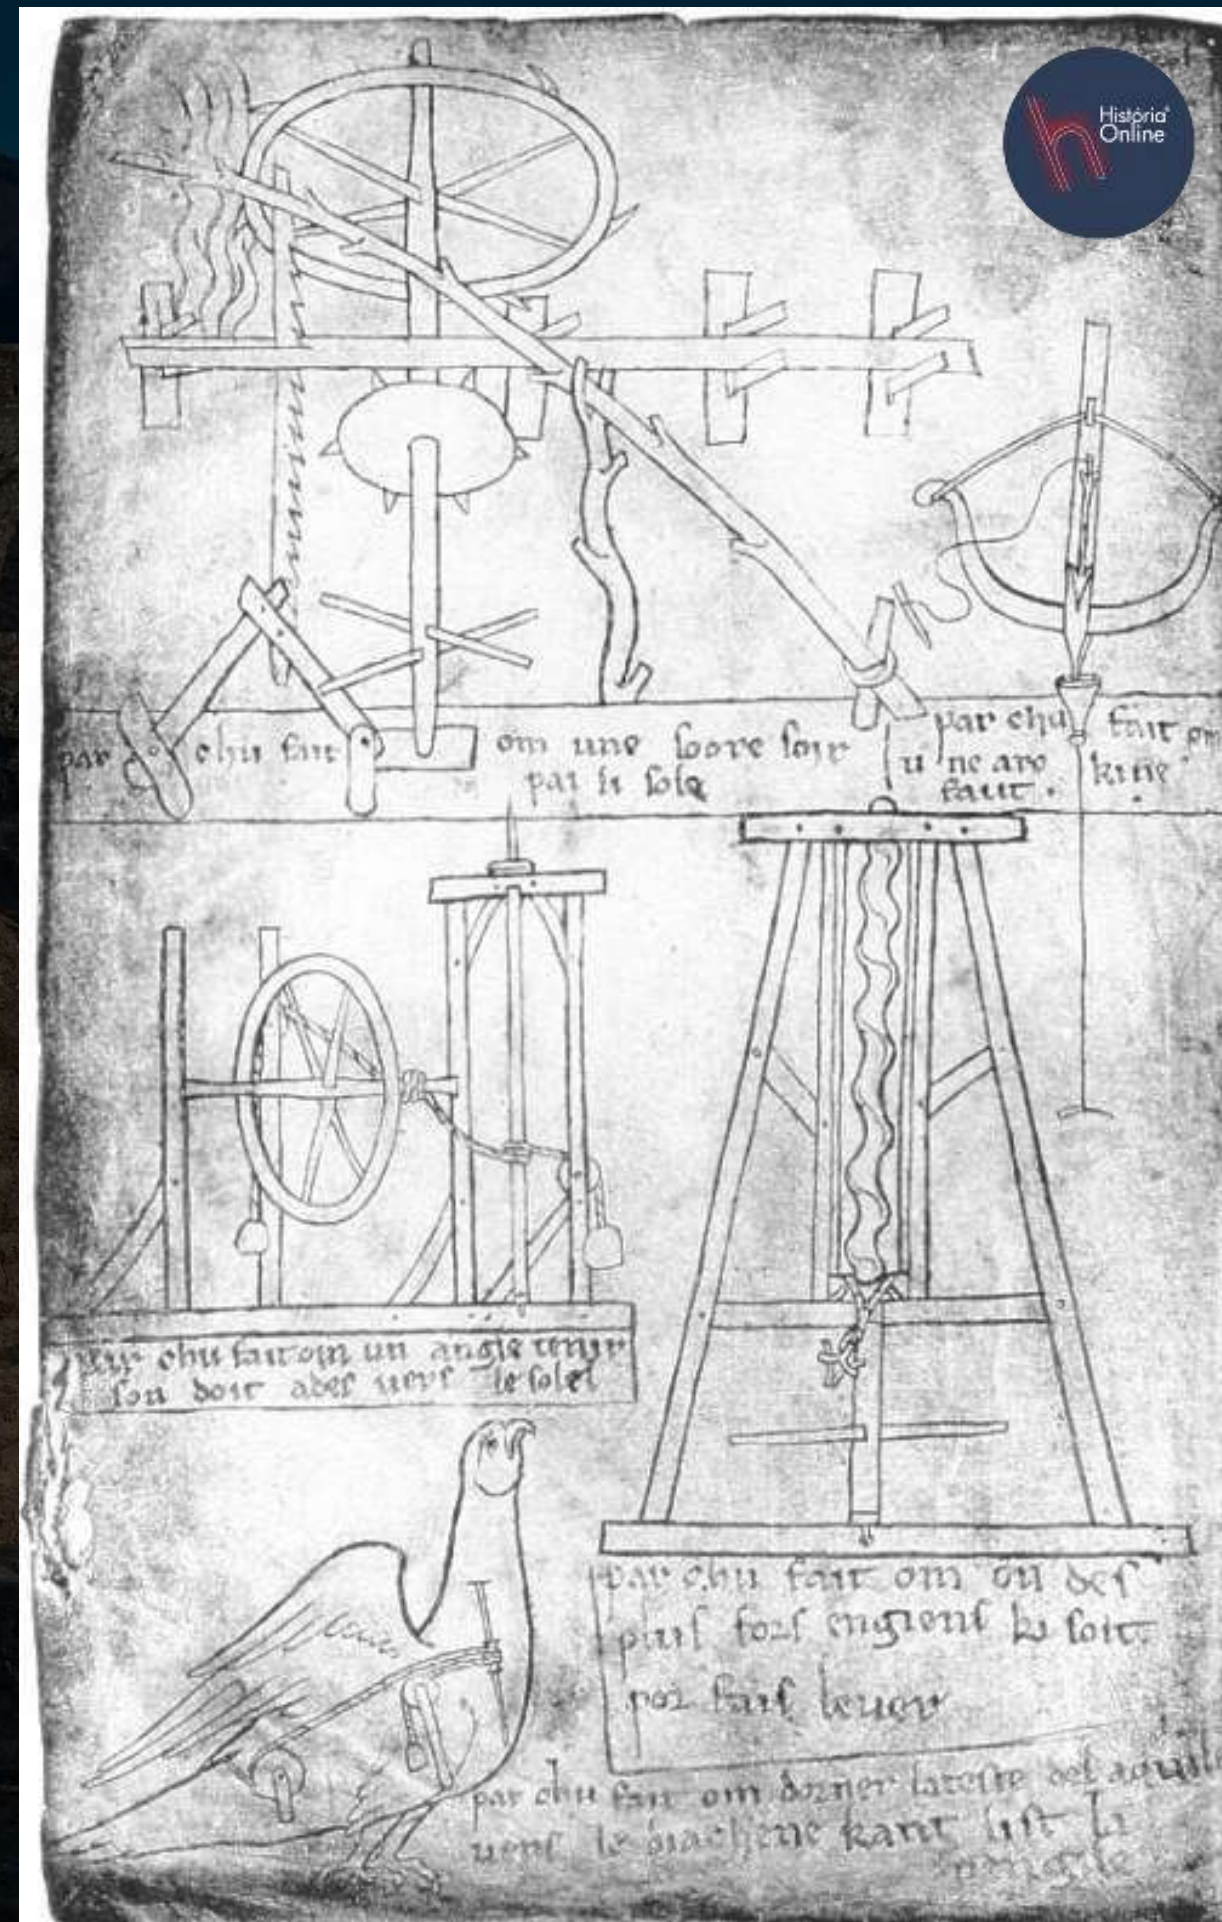 História
Online
par chu fait om une soore soir
par li sole
par chu fait om
une arc kine
faut .
par chu fait om un angle tenir
son doit ades uers le solel
par chu fait om on des
plus fors engiens ki soit
por fais leuer
par chu fait om dorner lateste del aquile
uers le diachene kant list la